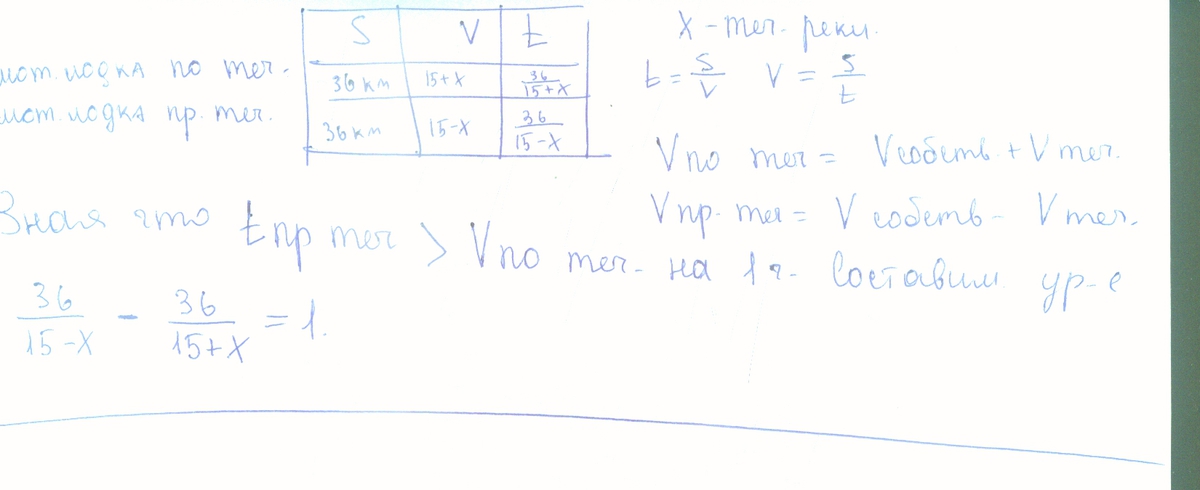 S V t
ист. лодка по теч.
36 км 15+x 36/15+x
ист. лодка пр. теч.
36 км 15-x 36/15-x
X - теч. реки.
t = S/V V = S/t
V по теч = V собств. + V теч.
V пр. теч = V собств - V теч.
Зная что t пр теч > V по теч. на 1 ч. Составим ур-е
36/15-x - 36/15+x = 1.